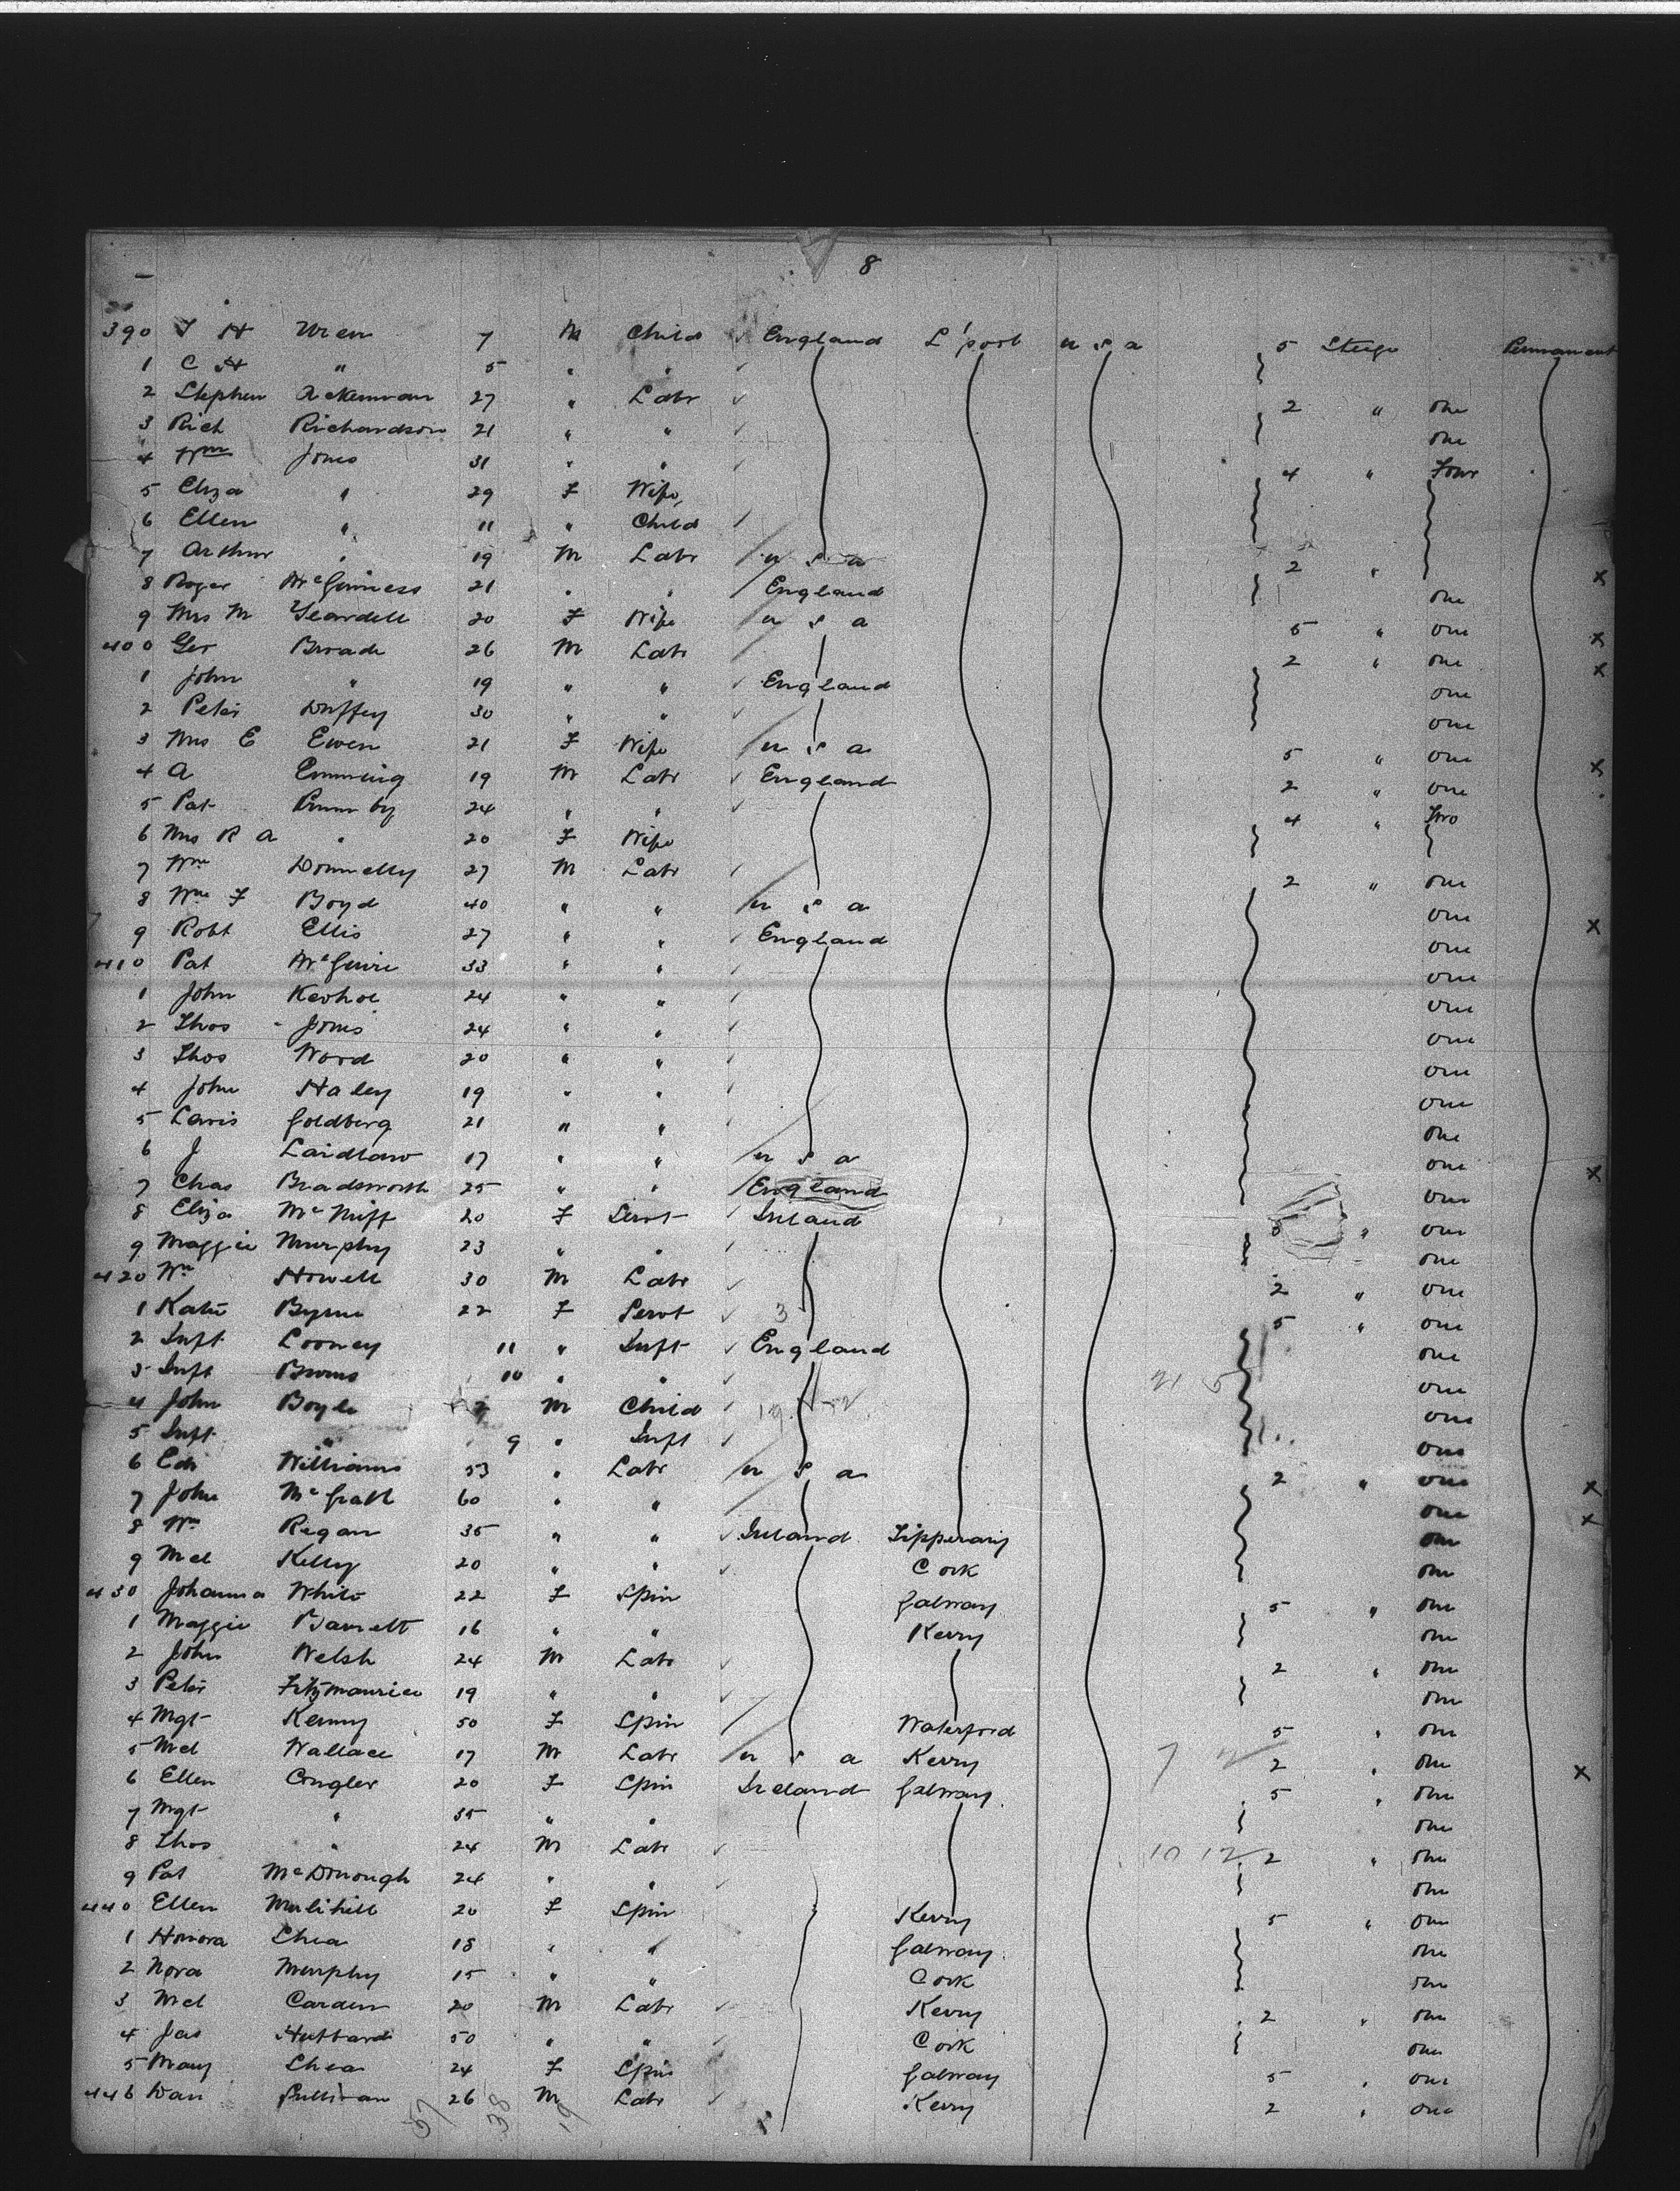 8
390 J H Wren 7 M Child England L'pool U S A 5 Steege Permanent
1 C H " 5 " "
2 Stephen Ackerman 27 " Labr 2 " One
3 Rich Richardson 21 " " One
4 Wm Jones 31 " " 4 " Four
5 Eliza " 29 F Wife
6 Ellen " 11 " Child
7 Arthur " 19 M Labr U S A 2 " x
8 Roger McGuiness 21 " " England One
9 Mrs M Yeardell 20 F Wife U S A 5 " One x
400 Geo Broade 26 M Labr 2 " One x
1 John " 19 " " England One
2 Peter Duffey 30 " " One
3 Mrs E Ewen 21 F Wife U S A 5 " One x
4 A Emming 19 M Labr England 2 " One
5 Pat 24 " " 4 " Two
6 Mrs R A " 20 F Wife
7 Wm Donnelly 27 M Labr 2 " One
8 Wm F Boyd 40 " " U S A One x
9 Robt Ellis 27 " " England One
410 Pat McGuire 33 " " One
1 John Keohoe 24 " " One
2 Thos Jones 24 " " One
3 Thos Word 20 " " One
4 John Haley 19 " " One
5 Goldberg 21 " " One
6 J Laidlaw 17 " " U S A One x
7 Chas Bradsworth 25 " " England One
8 Eliza McNiff 20 F Servt Ireland 5 " One
9 Maggie Murphy 23 " " One
420 Wm Howell 30 M Labr 2 " One
1 Katie Byrne 22 F Servt 3 5 " One
2 Inft Looney 11 " Inft England One
3 Inft Burns 10 " " 21 5 One
4 John Boyle M Child One
5 Inft " 9 " Inft One
6 Edw Williams 53 " Labr U S A 2 " One x
7 John McGrath 60 " " One x
8 Wm Regan 35 " " Ireland Tipperary One
9 Mcl Kelly 20 " " Cork One
430 Johanna White 22 F Spin Galway 5 " One
1 Maggie Barrett 16 " " Kerry One
2 John Welsh 24 M Labr 2 " One
3 Peter Fitzmaurice 19 " " One
4 Mgt Kenny 50 F Spin Waterford 5 " One
5 Mcl Wallace 17 M Labr U S A Kerry 7 2 " One x
6 Ellen Congler 20 F Spin Ireland Galway 5 " One
7 Mgt " 35 " " One
8 Thos " 24 M Labr 10 12 2 " One
9 Pat McDonough 24 " " One
440 Ellen Mulihill 20 F Spin Kerry 5 " One
1 Honora Shea 18 " " Galway One
2 Nora Murphy 15 " " Cork One
3 Mcl Carden 20 M Labr Kerry 2 " One
4 Jas Hubbard 50 " " Cork One
5 Mary Shea 24 F Spin Galway 5 " One
446 Dan Sullivan 26 M Labr Kerry 2 " One
57 38 19